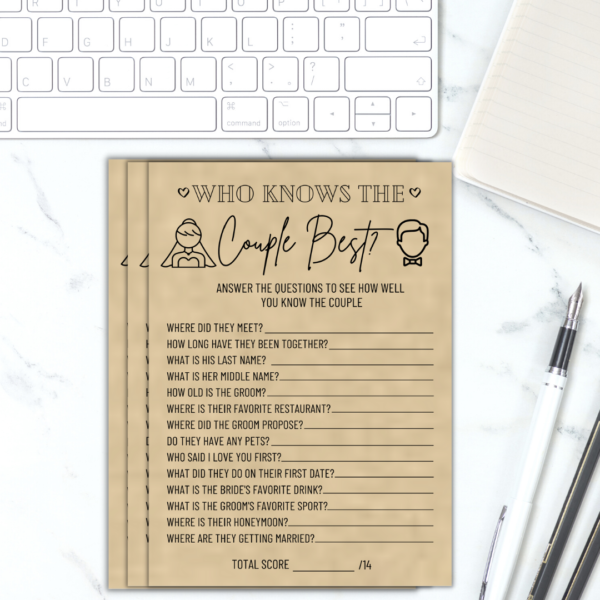 D F G H J K L : ; " '
C V B N M < , > . ? /
⌘ ⌥
command option
WHO KNOWS THE
Couple Best?
ANSWER THE QUESTIONS TO SEE HOW WELL
YOU KNOW THE COUPLE
WHERE DID THEY MEET?
HOW LONG HAVE THEY BEEN TOGETHER?
WHAT IS HIS LAST NAME?
WHAT IS HER MIDDLE NAME?
HOW OLD IS THE GROOM?
WHERE IS THEIR FAVORITE RESTAURANT?
WHERE DID THE GROOM PROPOSE?
DO THEY HAVE ANY PETS?
WHO SAID I LOVE YOU FIRST?
WHAT DID THEY DO ON THEIR FIRST DATE?
WHAT IS THE BRIDE'S FAVORITE DRINK?
WHAT IS THE GROOM'S FAVORITE SPORT?
WHERE IS THEIR HONEYMOON?
WHERE ARE THEY GETTING MARRIED?
TOTAL SCORE __________ /14